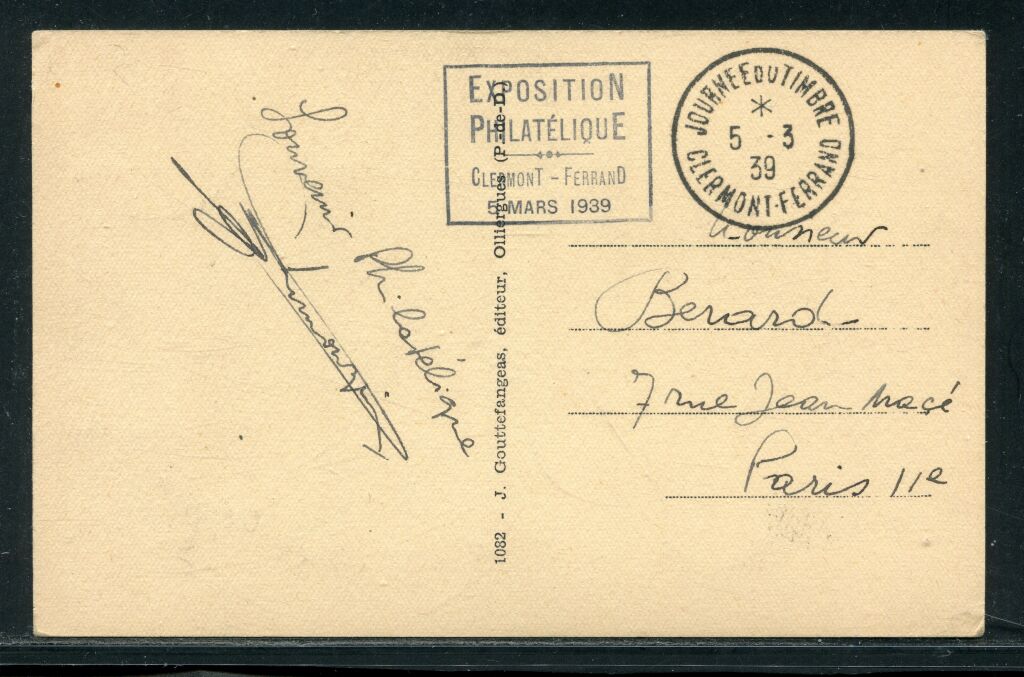 EXPOSITION
PHILATÉLIQUE
CLERMONT - FERRAND
5 MARS 1939
JOURNEE DU TIMBRE
*
5 - 3
39
CLERMONT-FERRAND
Souvenir
Philatélique
1082 - J. Gouttefangeas, éditeur, Olliergues (P.-de-D.)
Monsieur
Berard
7 rue Jean Macé
Paris 11e